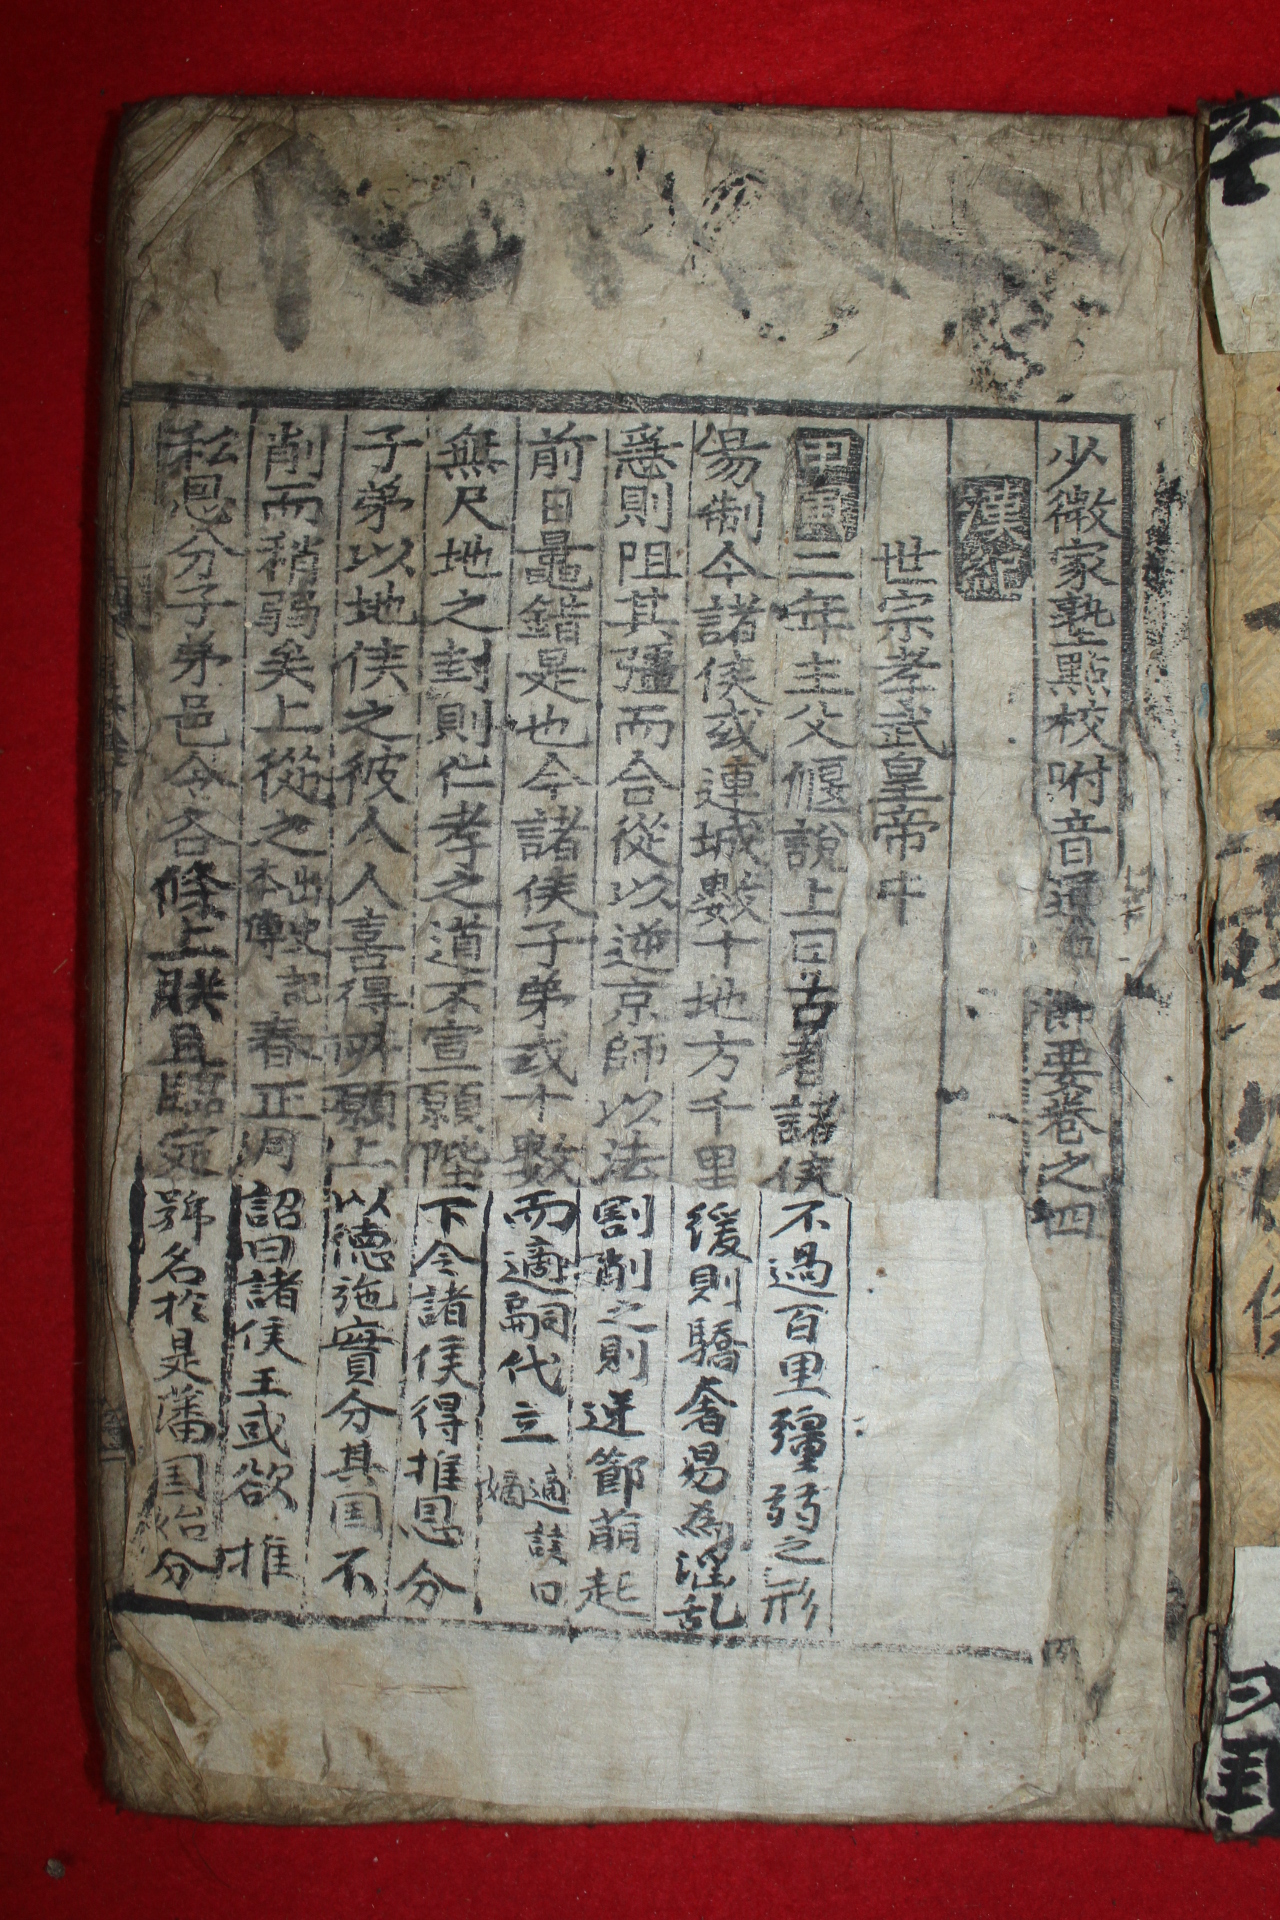 少微家塾點校附音通鑑節要卷之四
漢紀
世宗孝武皇帝中
甲寅二年主父偃說上曰古者諸侯不過百里彊弱之形
易制今諸侯或連城數十地方千里緩則驕奢易為淫乱
急則阻其彊而合從以逆京師以法割削之則逆節萌起
前日鼂錯是也今諸侯子弟或十數而適嗣代立適讀曰嫡
無尺地之封則仁孝之道不宣願陛下令諸侯得推恩分
子弟以地侯之彼人人喜得所願上以德施實分其国不
削而稍弱矣上從之出史記本傳春正月詔曰諸侯王或欲推
私恩分子弟邑令各條上朕且臨定號名於是藩国始分